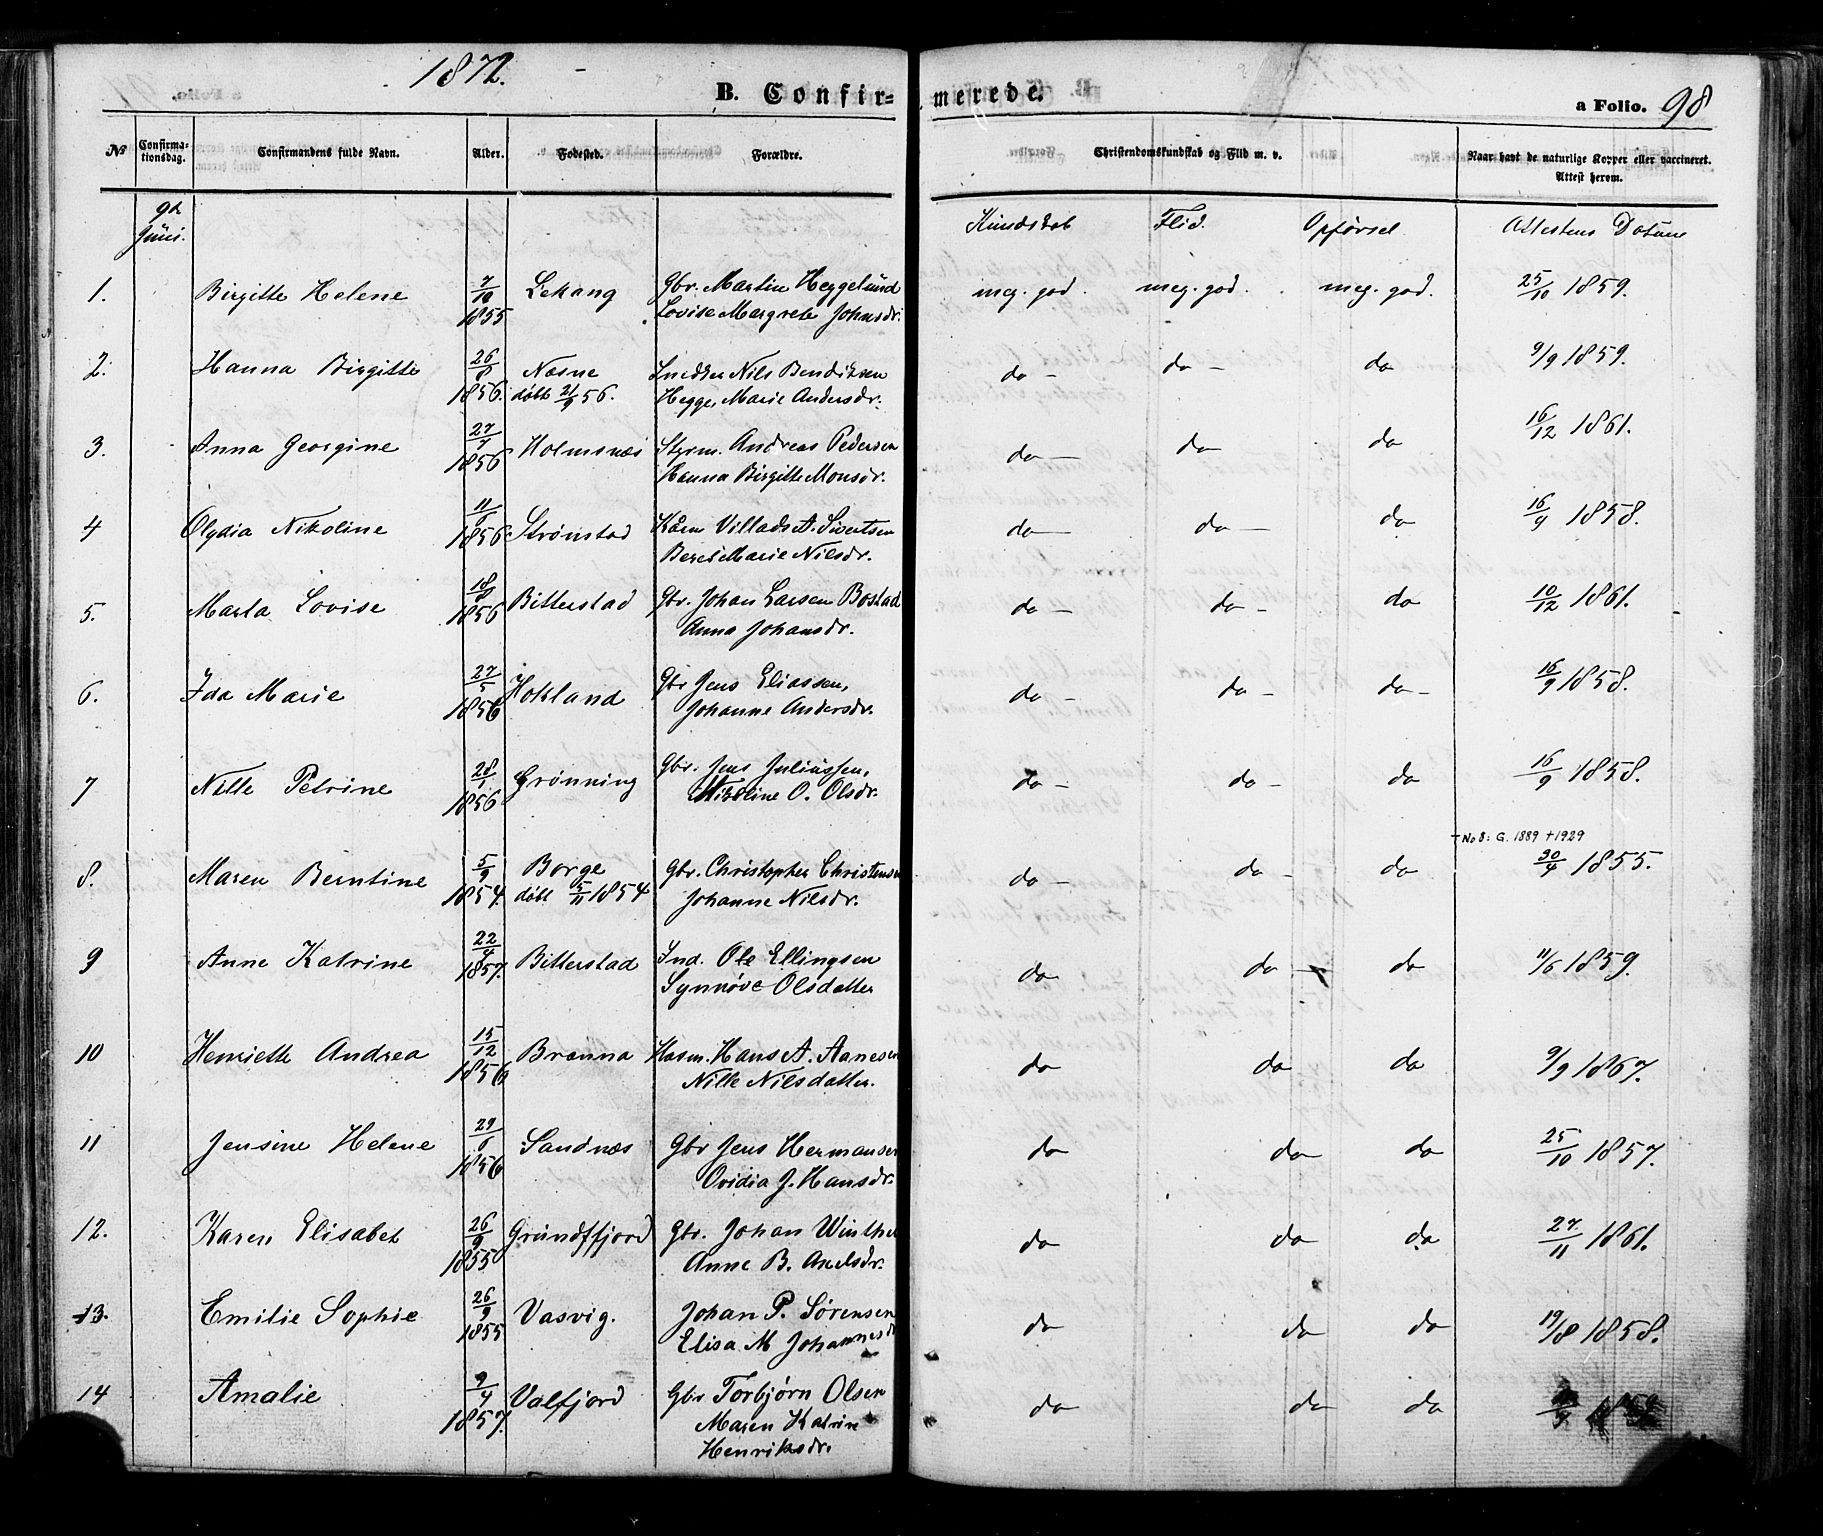 1872.
B. Confir-merede.
a Folio. 98
No Confirmationsdag. Confirmandens fulde Navn. Alder. Fødested. Forældre. Christendomskundskab og Flid m. v. Naar havt de naturlige Kopper eller vaccineret. Attest herom.
9de Juni. Kundskab Flid. Opførsel Attestens Datum
1. Birgitte Helene 7/10 1855 Lekang Gbr. Martin Heggelund meg. god. meg. god. meg. god. 25/10 1859.
Lovise Margrete Johnsdr.
2. Hanna Birgitte 26/8 1856. Næsne Snedker Nils Bendiksen do - do - do 9/9 1859.
døbt 21/9 56. Hegge, Marie Andersdr.
3. Anna Georgine 27/7 1856 Holmsnæs Styrm. Andreas Pedersen do - do do 16/12 1861.
Hanna Birgitte Monsdr.
4 Olydia Nikoline 1856 Strønstad Villads A. Sivertsen do - do - do 16/9 1858.
Beret Marie Nilsdr.
5. Marta Lovise 1856 Bitterstad Gbr. Johan Larsen Bostad do - do - do 10/12 1861.
Anna Johansdr.
6. Ida Marie 27/5 1856 Hokland Gbr Jens Eliassen, do - do - do - 16/9 1858.
Johanne Andersdr.
7 Nille Petrine 28/1 1856 Grønning Gbr. Jens Juliussen, do - do - do 16/9 1858.
Nikoline O. Olsdr.
+No 8: G. 1889 +1929
8. Maren Berntine 5/9 1854. Borge Gbr. Christopher Christensen do - do - do 30/4 1855.
døbt 5/11 1854 Johanne Nilsdr.
9 Anne Katrine 22/4 1857. Bitterstad Ind. Ole Ellingsen do do - do 11/6 1859.
Synnøve Olsdatter
10 Henriette Andrea 15/12 1856 Brænna Husm. Hans A. Aanesen do do do 9/9 1867.
Nille Nilsdatter.
11 Jensine Helene 29/6 1856 Sandnæs Gbr Jens Hermansen do do do 25/10 1857.
Ovidia J. Hansdr.
12. Karen Elisabet 26/9 1855 Grundfjord Gbr. Johan Winther do do do 27/11 1861.
Anne B. Axelsdr.
13. Emilie Sophie 26/9 1855 Vasvig. Johan P. Sørensen do do do 19/8 1858.
Elisa M Johannesd
14 Amalie 9/4 1857. Valfjord Gbr Torbjørn Olsen do do do
Maren Katrine
Henriksdr.